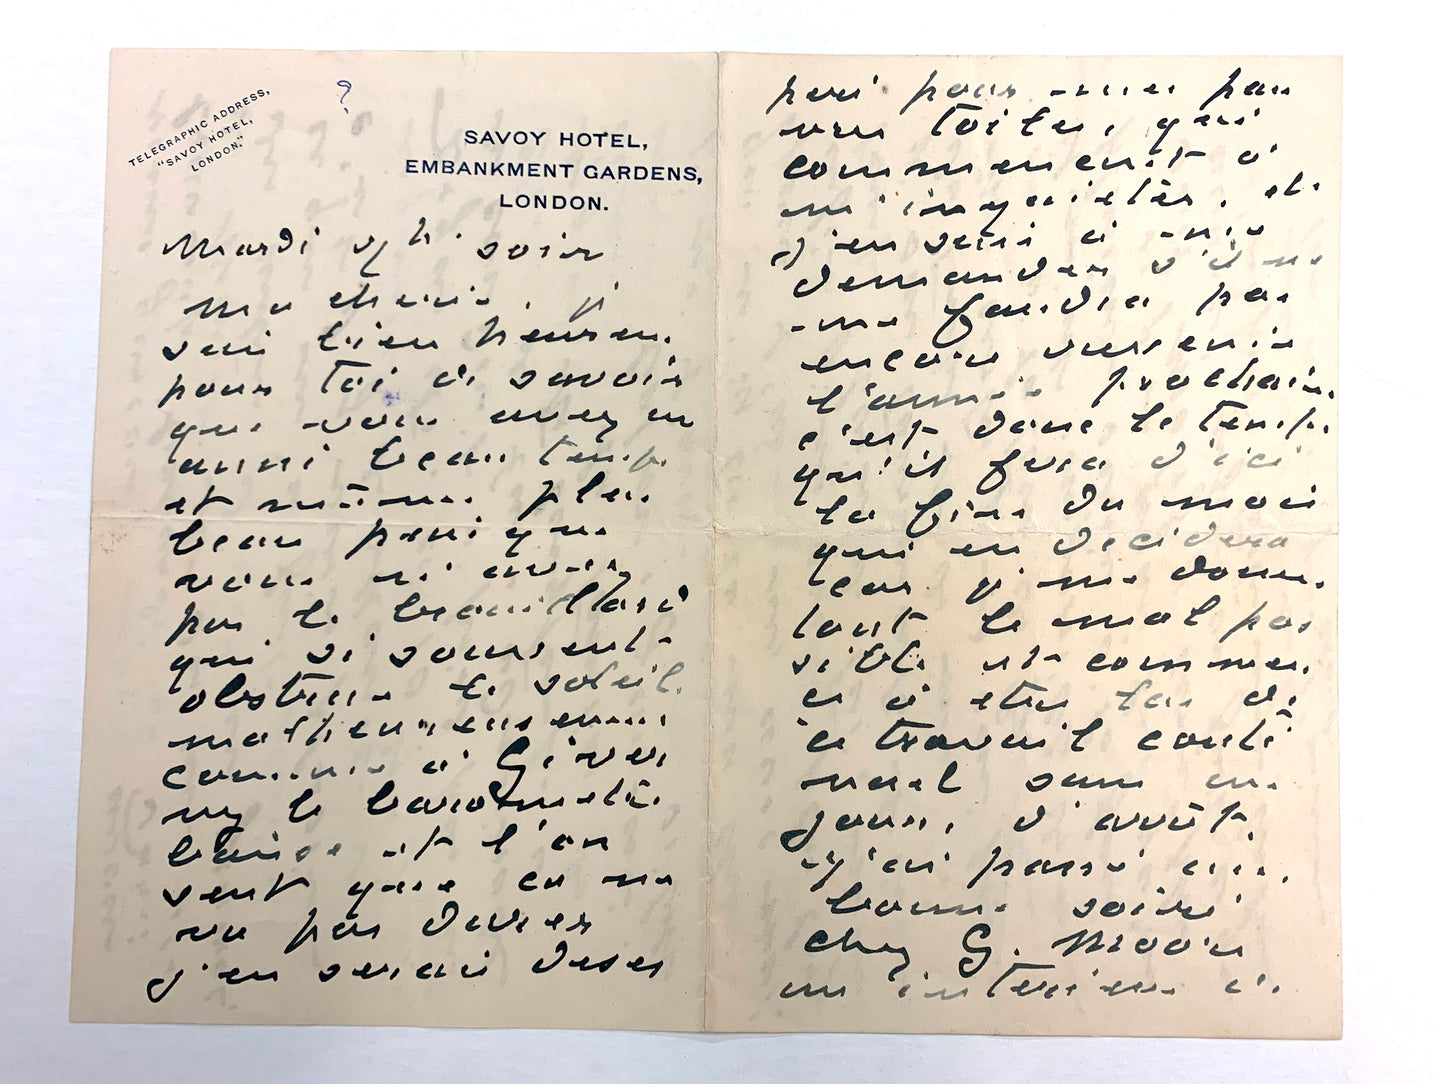 TELEGRAPHIC ADDRESS,
"SAVOY HOTEL,
LONDON."
?
SAVOY HOTEL,
EMBANKMENT GARDENS,
LONDON.
Mardi soir
Ma chérie, je
suis bien heureux
pour toi de savoir
que vous avez un
aussi beau temps
et même plus
beau puisque
vous n'avez
pas le brouillard
qui si souvent
obstrue le soleil.
malheureusement
comme à Giver
ny le baromètre
baisse et l'on
sent que ça ne
va pas durer
j'en serais déses
péré pour moi par
mes toiles, qui
commencent à
m'inquiéter, et
j'en suis à me
demander s'il ne
me faudra pas
encore revenir
l'année prochaine
c'est donc le temps
qu'il fera d'ici
la fin du mois
qui en décidera
car je me donne
tout le mal pos
sible et commen
ce à être las de
ce travail conti
nuel sans un
jour d'arrêt.
j'ai passé une
bonne soirée
chez G. Moore
un intérieur